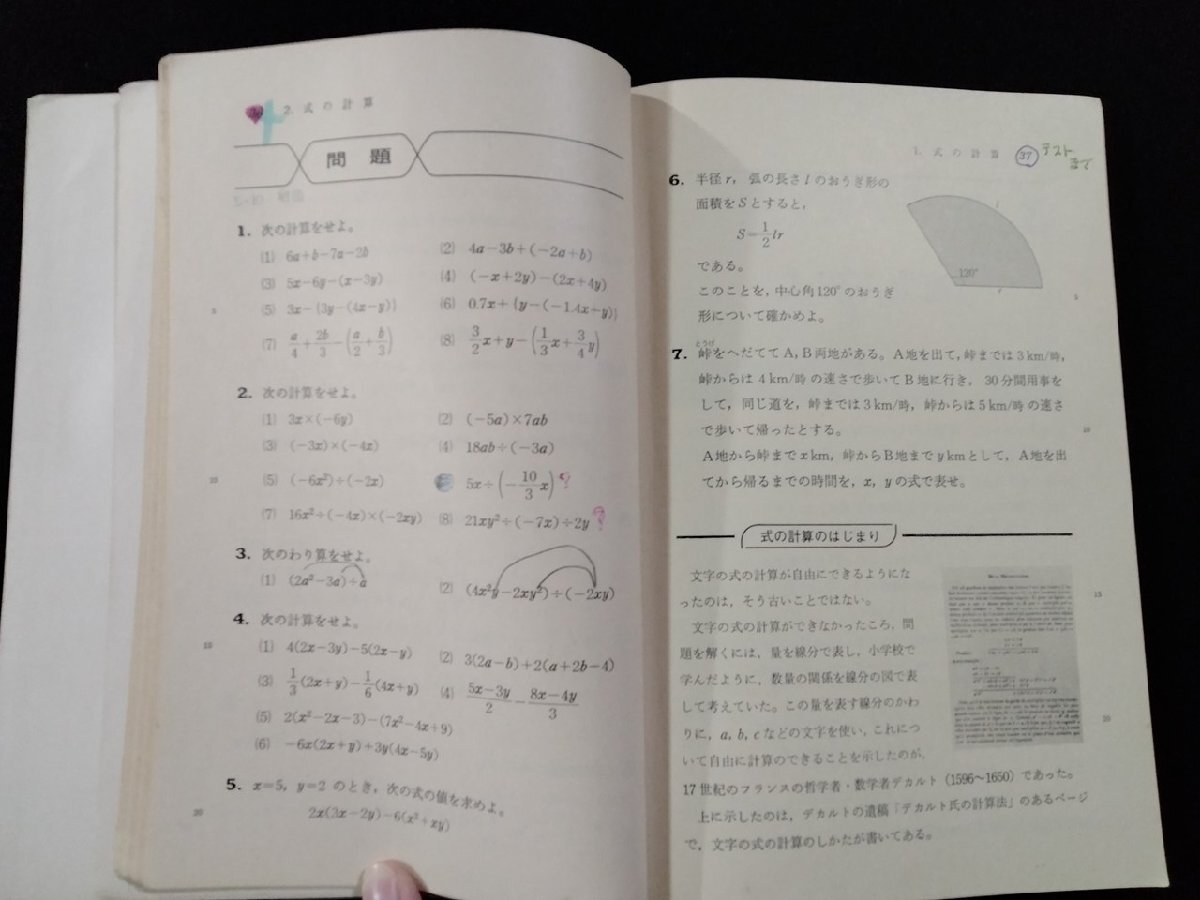 2. 式の計算
問題
1. 次の計算をせよ。
(1) 6a+b-7a-2b (2) 4a-3b+(-2a+b)
(3) 5x-6y-(x-3y) (4) (-x+2y)-(2x+4y)
5 (5) 3x-{3y-(4x-y)} (6) 0.7x+{y-(-1.4x+y)}
(7) a/4+2b/3-(a/2+b/3) (8) 3/2x+y-(1/3x+3/4y)
2. 次の計算をせよ。
(1) 3x×(-6y) (2) (-5a)×7ab
(3) (-3x)×(-4x) (4) 18ab÷(-3a)
10 (5) (-6x²)÷(-2x) 5x÷(-10/3x) ?
(7) 16x²÷(-4x)×(-2xy) (8) 21xy²÷(-7x)÷2y ?
3. 次のわり算をせよ。
(1) (2a²-3a)÷a (2) (4x²y-2xy²)÷(-2xy)
4. 次の計算をせよ。
15 (1) 4(2x-3y)-5(2x-y) (2) 3(2a-b)+2(a+2b-4)
(3) 1/3(2x+y)-1/6(4x+y) (4) (5x-3y)/2-(8x-4y)/3
(5) 2(x²-2x-3)-(7x²-4x+9)
(6) -6x(2x+y)+3y(4x-5y)
5. x=5, y=2 のとき, 次の式の値を求めよ。
20 2x(3x-2y)-6(x²+xy)
1. 式の計算 37 テストまで
6. 半径r, 弧の長さlのおうぎ形の
面積をSとすると,
S=1/2lr
である。
このことを, 中心角120°のおうぎ
形について確かめよ。
120°
l
r
5
とうげ
7. 峠をへだててA, B両地がある。A地を出て, 峠までは3km/時,
峠からは4km/時の速さで歩いてB地に行き, 30分間用事を
して, 同じ道を, 峠までは3km/時, 峠からは5km/時の速さ
で歩いて帰ったとする。 10
A地から峠までxkm, 峠からB地までykmとして, A地を出
てから帰るまでの時間を, x, yの式で表せ。
式の計算のはじまり
文字の式の計算が自由にできるようにな
ったのは, そう古いことではない。 15
文字の式の計算ができなかったころ, 問
題を解くには, 量を線分で表し, 小学校で
学んだように, 数量の関係を線分の図で表
して考えていた。この量を表す線分のかわ
りに, a, b, cなどの文字を使い, これにつ 20
いて自由に計算のできることを示したのが,
17世紀のフランスの哲学者・数学者デカルト(1596~1650)であった。
上に示したのは, デカルトの遺稿「デカルト氏の計算法」のあるページ
で, 文字の式の計算のしかたが書いてある。